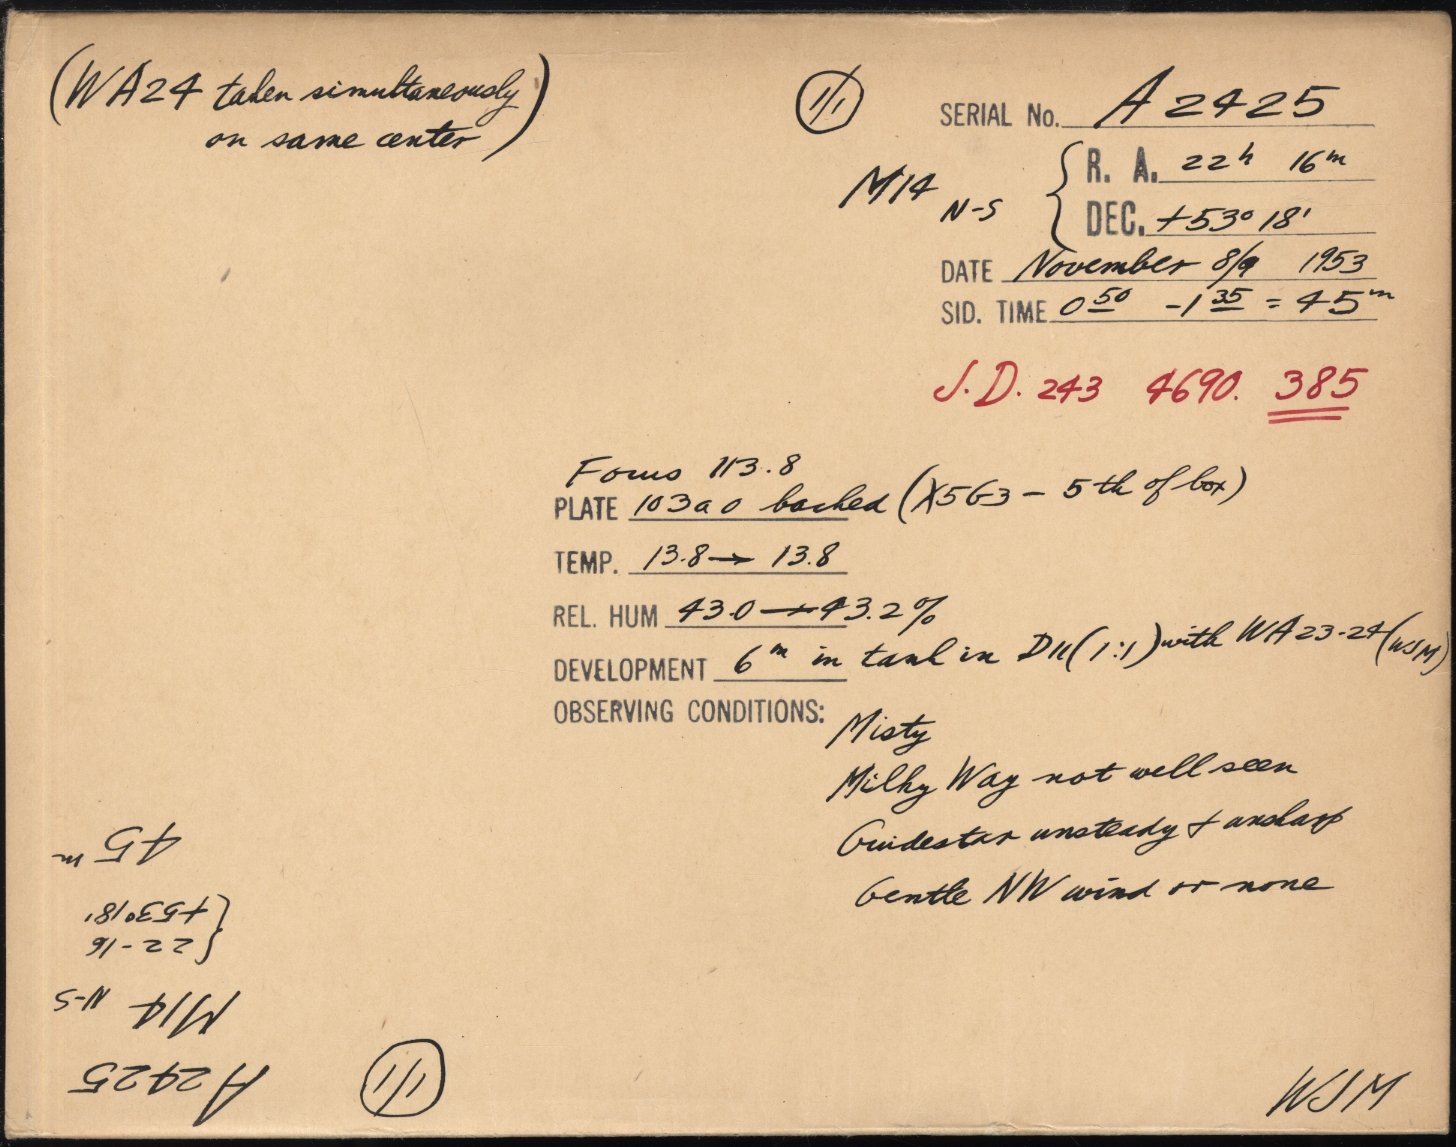 (WA24 taken simultaneously
on same center)
1/1
SERIAL No. A2425
M14 N-S { R. A. 22h 16m
DEC. +53° 18'
DATE November 8/9 1953
SID. TIME 0 50 - 1 35 = 45m
J.D. 243 4690. 385
Focus 113.8
PLATE 103aO backed (X5G3 - 5th of box)
TEMP. 13.8 → 13.8
REL. HUM 43.0 → 43.2%
DEVELOPMENT 6m in tank in D11 (1:1) with WA23-24 (WJM)
OBSERVING CONDITIONS:
Misty
Milky Way not well seen
Guidestar unsteady & unsharp
Gentle NW wind or none
WJM
1/1
A2425
M14 N-S
{ 22-16
+53° 18'
45m